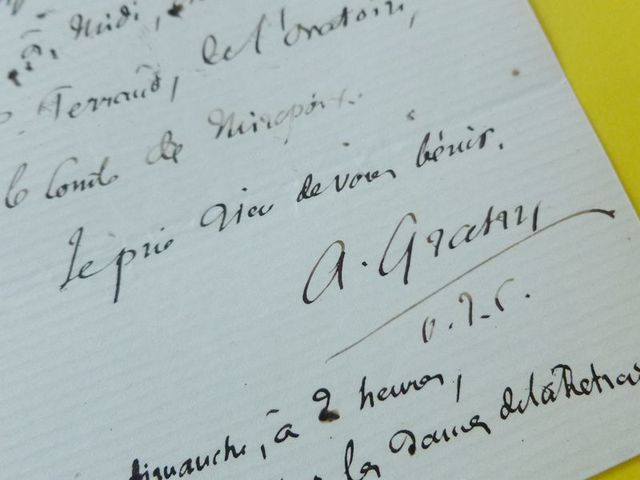 à Midi,
Ferraud, de l'oratoire,
le Comte de Mirepoix.
Je prie Dieu de vous bénir.
A. Gratry
dimanche, à 2 heures,
les Dames de la Retrai